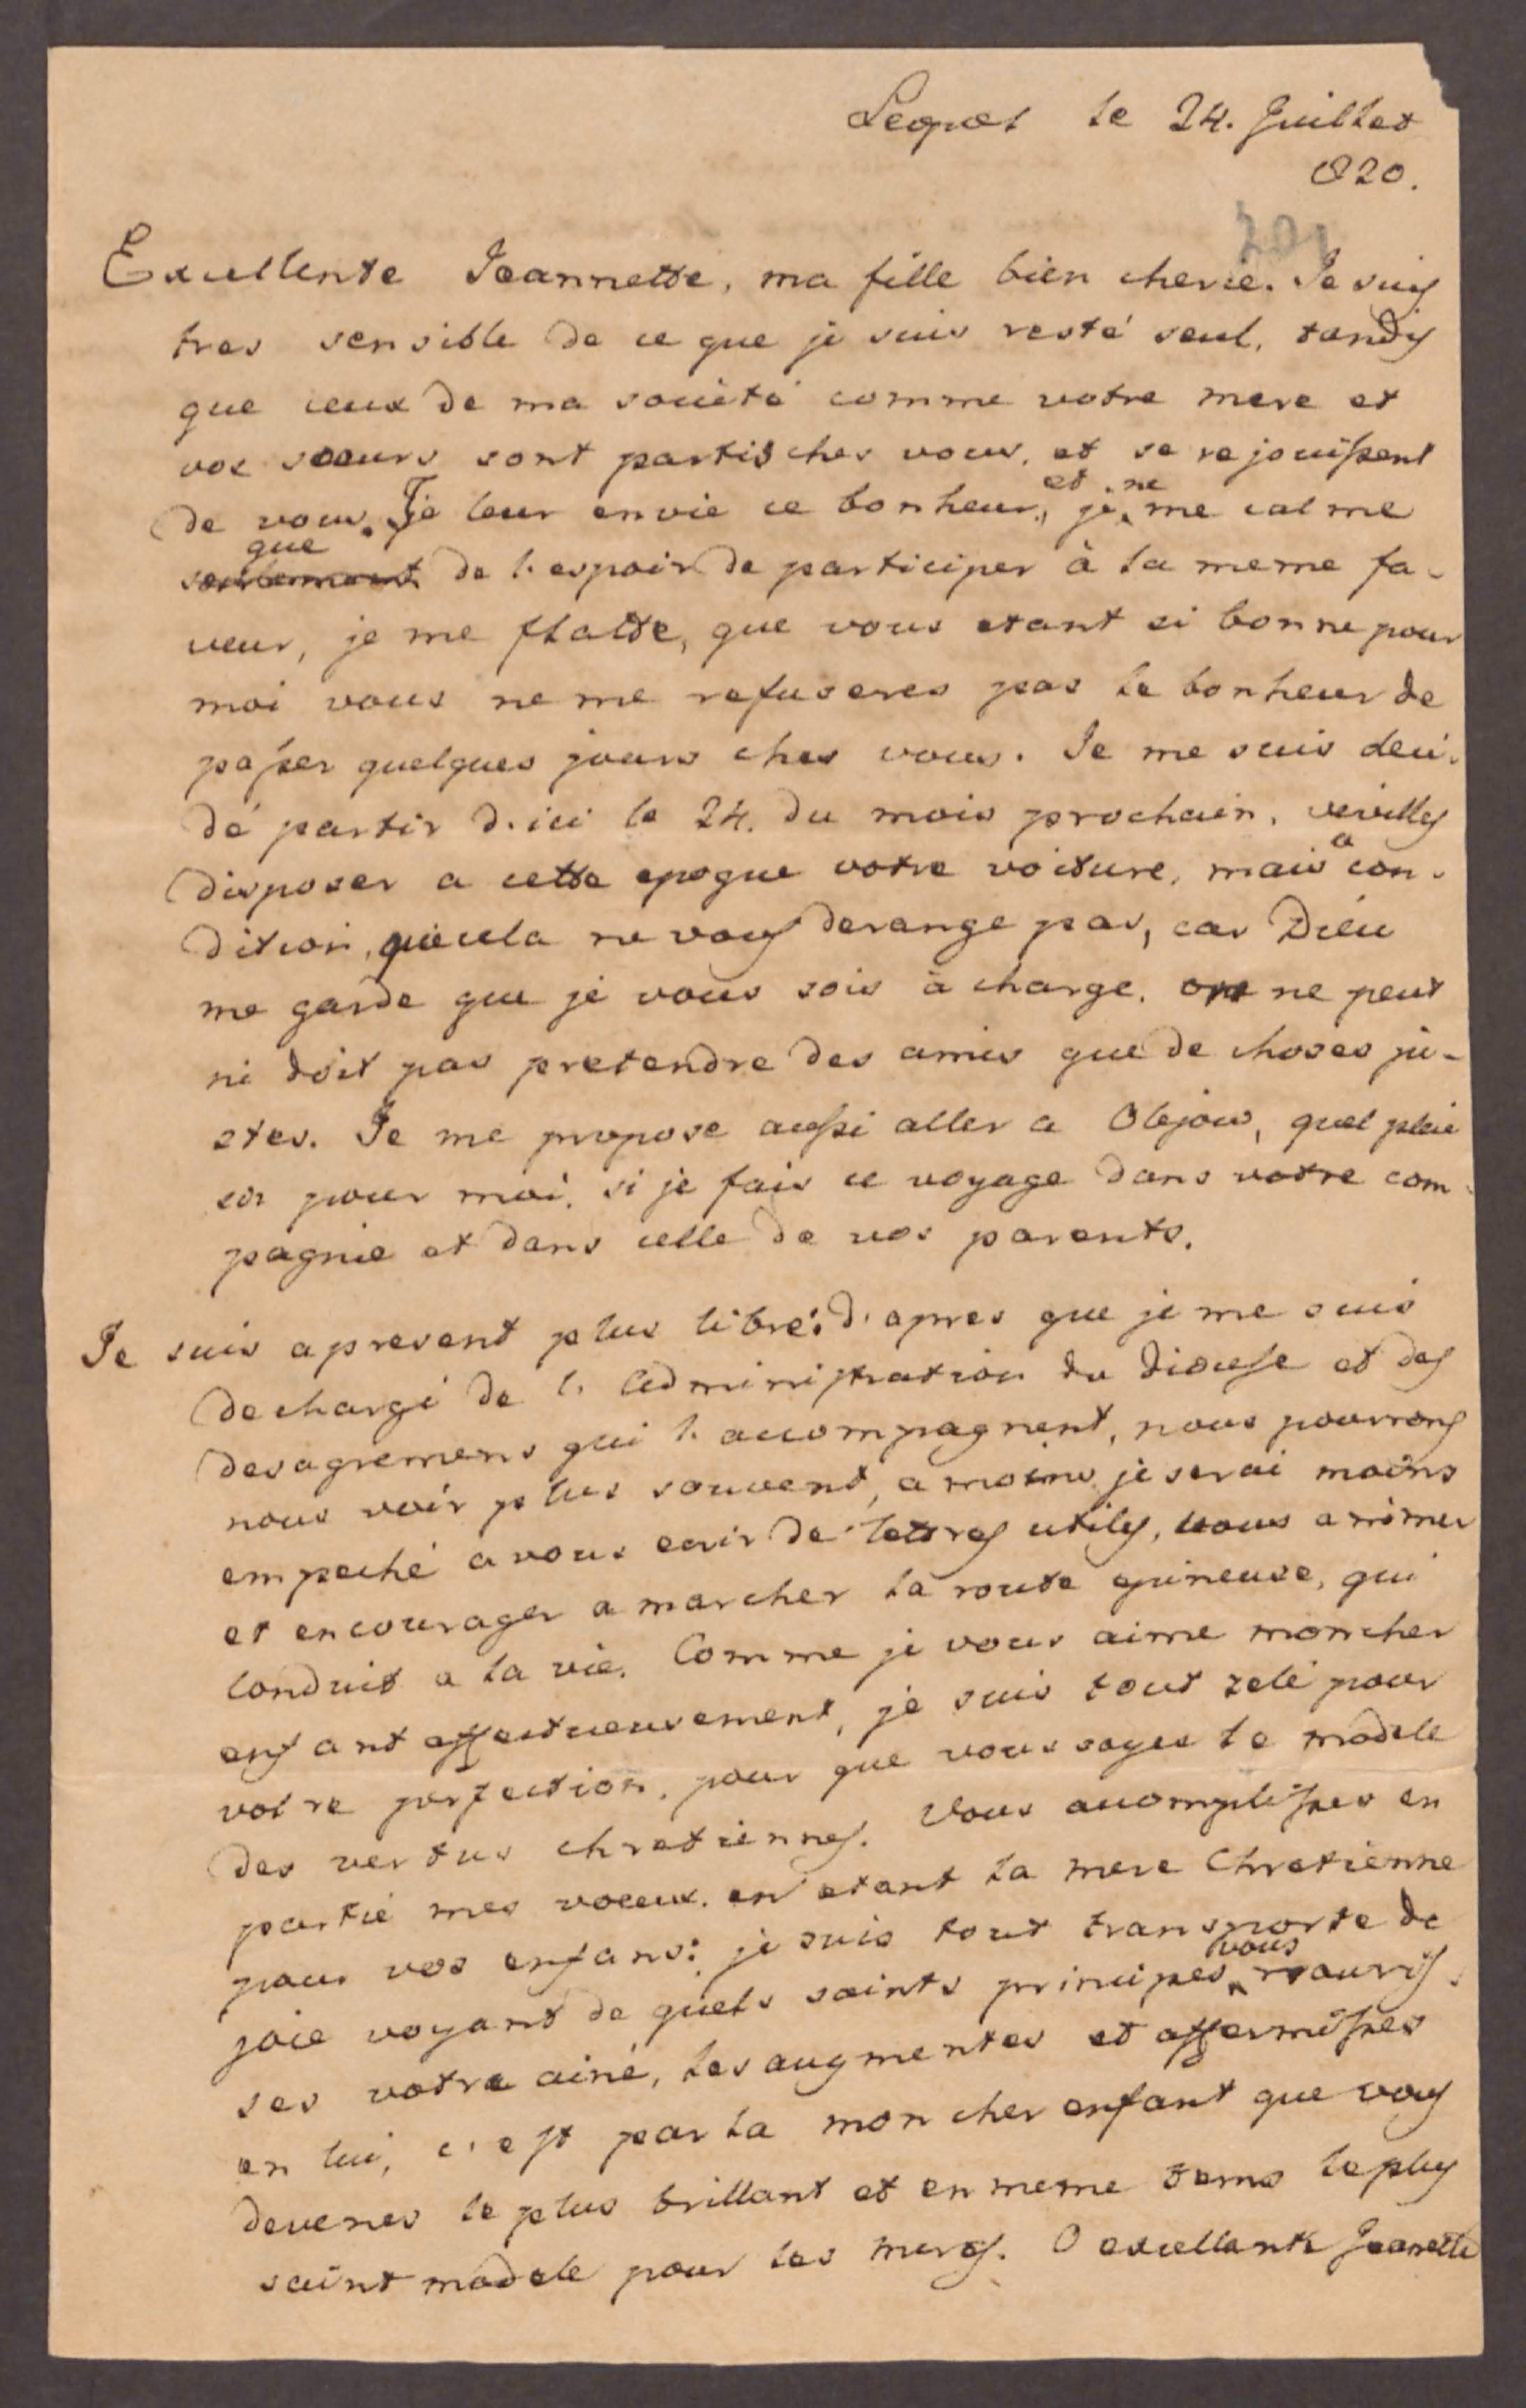 Leopol le 24. Juillet
820.
201
Excellente Jeannette, ma fille bien cherie. Je suis
tres sensible de ce que je suis resté seul, tandis
que ceux de ma societé comme votre mere et
vos soeurs sont partis ches vous, et se rejouissent
de vous. Je leur envie ce bonheur, et je ne me calme
seulement que de l'espoir de participer à la meme fa-
veur, je me flatte, que vous etant si bonne pour
moi vous ne me refuseres pas le bonheur de
passer quelques jours ches vous. Je me suis deci-
dé partir d'ici le 24. du mois prochain, veuilles
disposer a cette epoque votre voiture, mais a con-
dition, que cela ne vous derange pas, car Dieu
me garde que je vous sois à charge. on ne peut
ni doit pas pretendre des amis que de choses ju-
stes. Je me propose aussi aller a Olejow, quel plai
sir pour moi, si je fais ce voyage dans votre com-
pagnie et dans celle de vos parents.
Je suis apresent plus libre: d'apres que je me suis
dechargé de l'Administration du diocese et des
desagremens qui l'accompagnent, nous pourrons
nous voir plus souvent, a moins je serai moins
empeché a vous ecrir de lettres utiles, vous animer
et encourager a marcher la route epineuse, qui
conduit a la vie. Comme je vous aime mon cher
enfant affectueusement, je suis tout zelé pour
votre perfection, pour que vous soyes le modele
des vertus chretiennes. Vous accomplisses en
partie mes voeux. en etant la mere Chretienne
pour vos enfans: je suis tout transporte de
joie voyant de quels saints principes vous nouris-
ses votre ainé, les augmentes et affermisses
en lui, c'est par la mon cher enfant que vous
devenes le plus brillant et en meme tems le plus
saint modele pour les meres. O excellante Jeanette